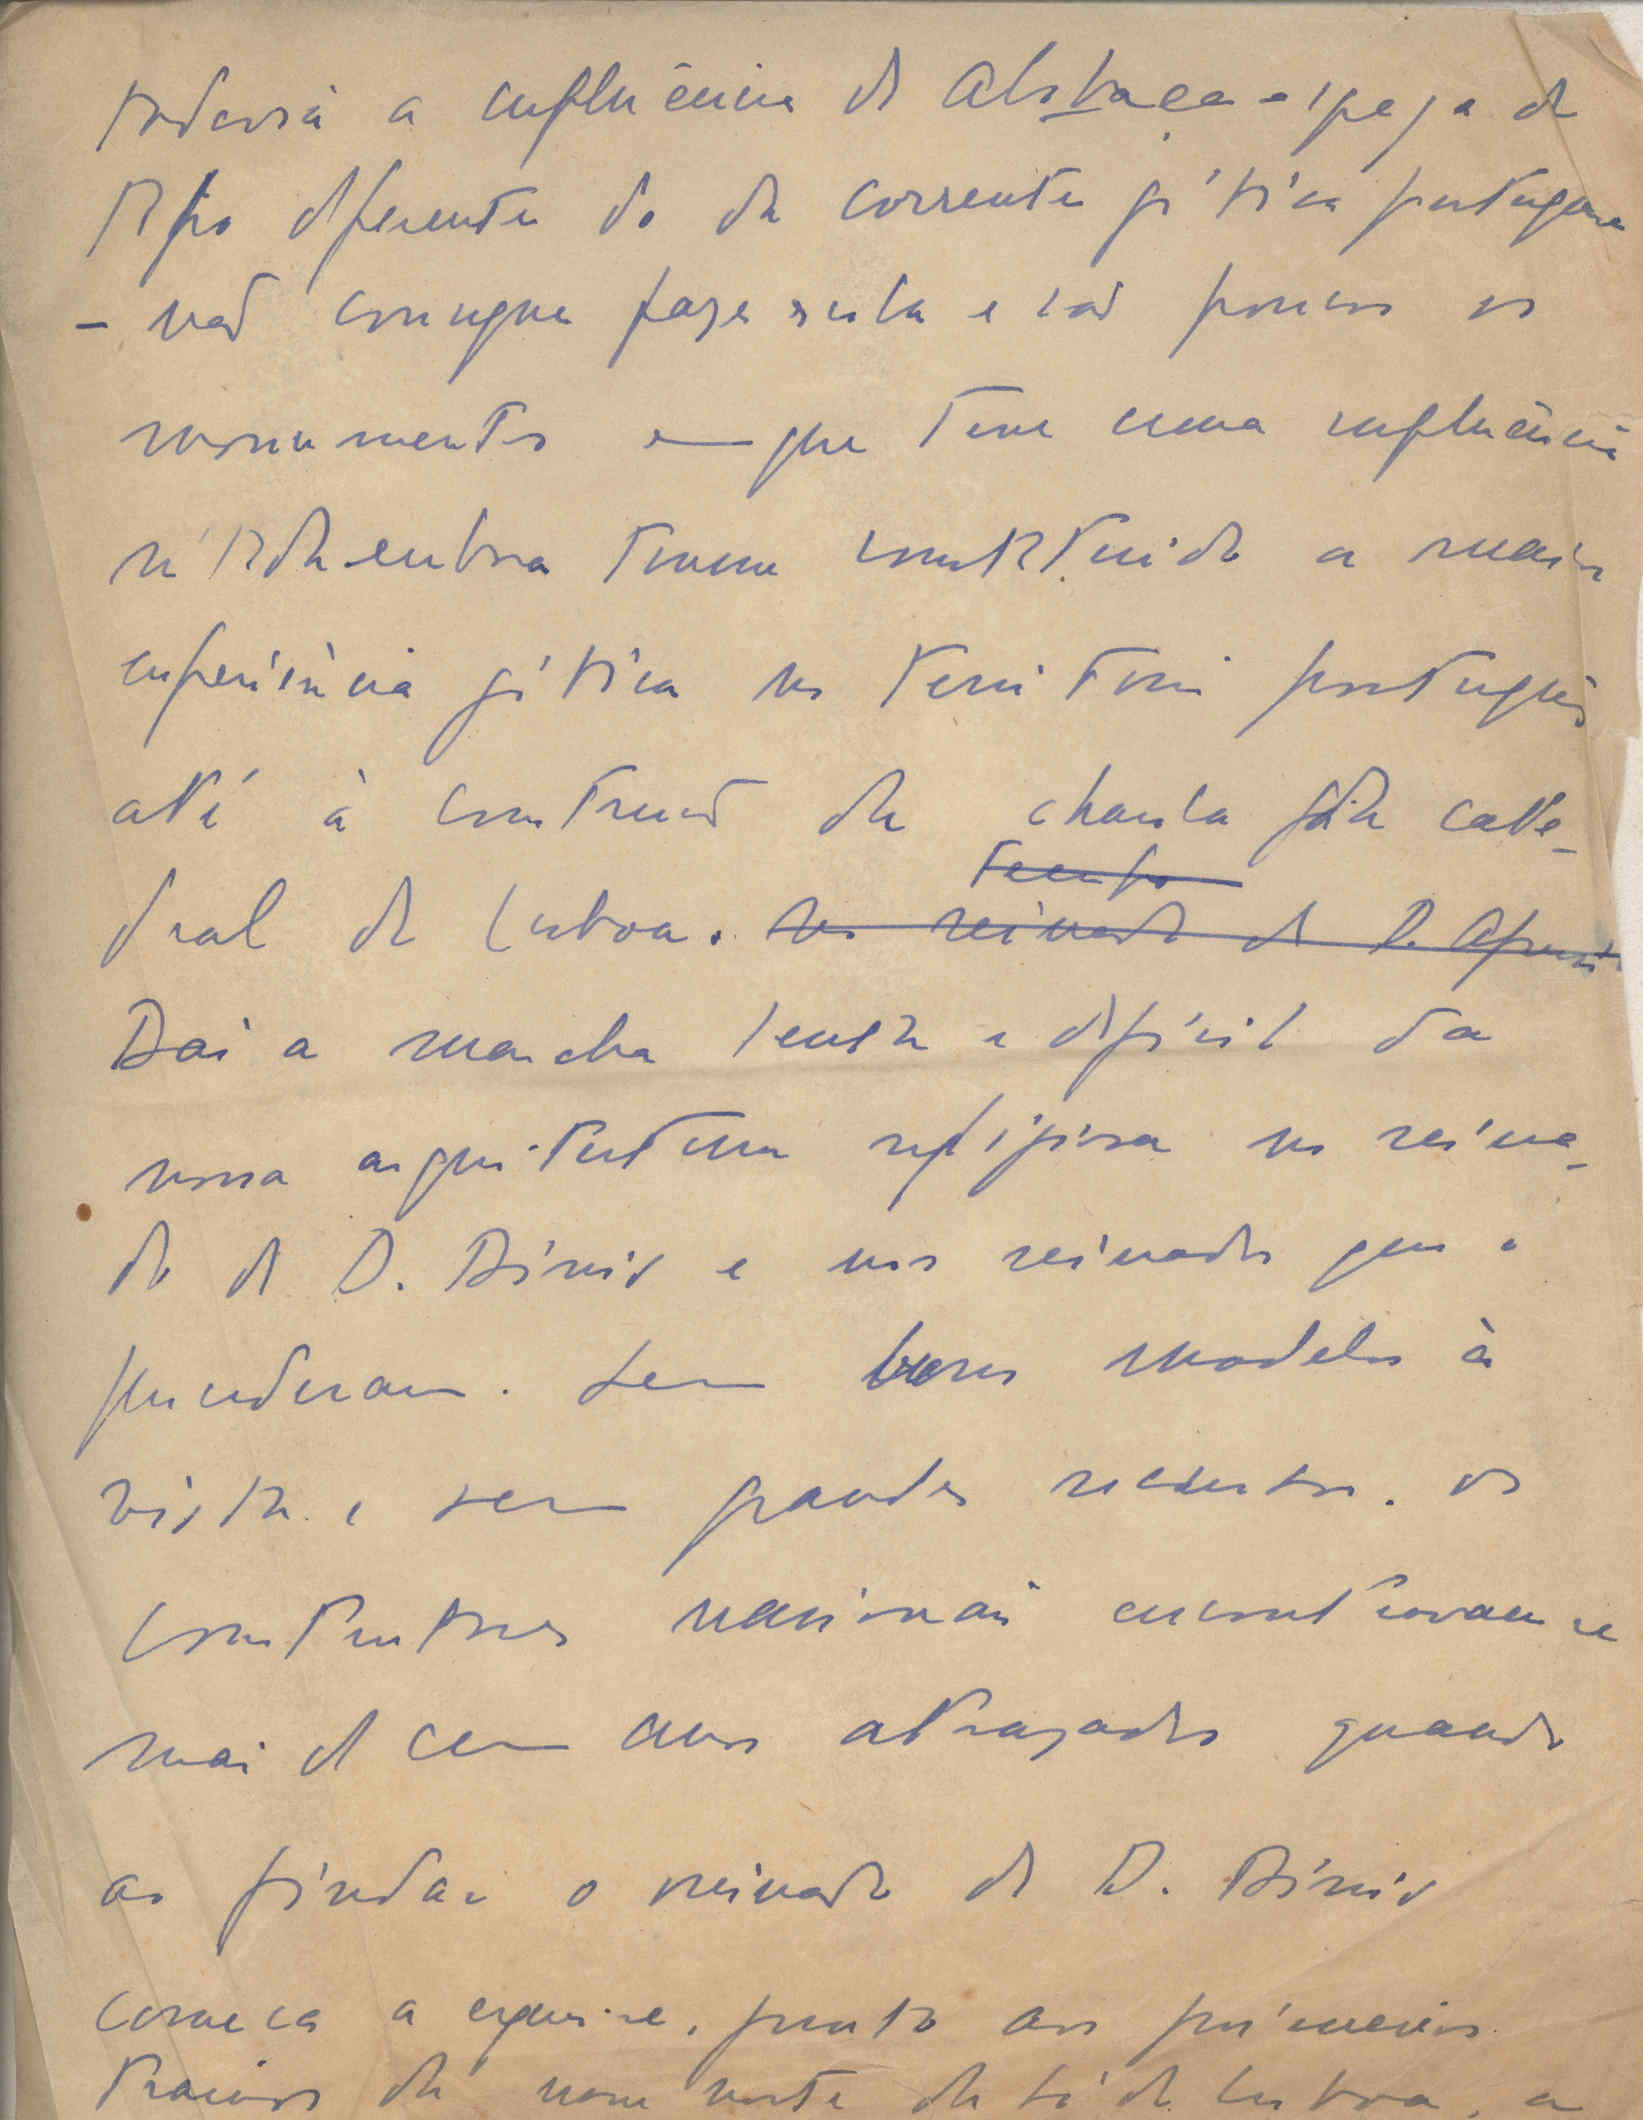 Todavia a influência de Alcobaça - igreja de
tipo diferente do da corrente gótica portuguesa
- não consegue fazer escola e são poucos os
monumentos em que teve uma influência
nítida embora tivesse constituido a maior
experiência gótica no território português
até à construção da charola da cate-
dral de Lisboa. no reinado de D. Afonso
tempo
Daí a marcha lenta e difícil da
nossa arquitectura religiosa no reina-
do de D. Dinis e nos reinados que o
precederam. Sem bons modelos à
vista e sem grandes recursos. os
construtores nacionais encontravam se
mais de cem anos atrazados quando
ao findar o reinado de D. Dinis
começa a erguer-se, junto aos primeiros
tramos da nave norte da Sé de Lisboa, a